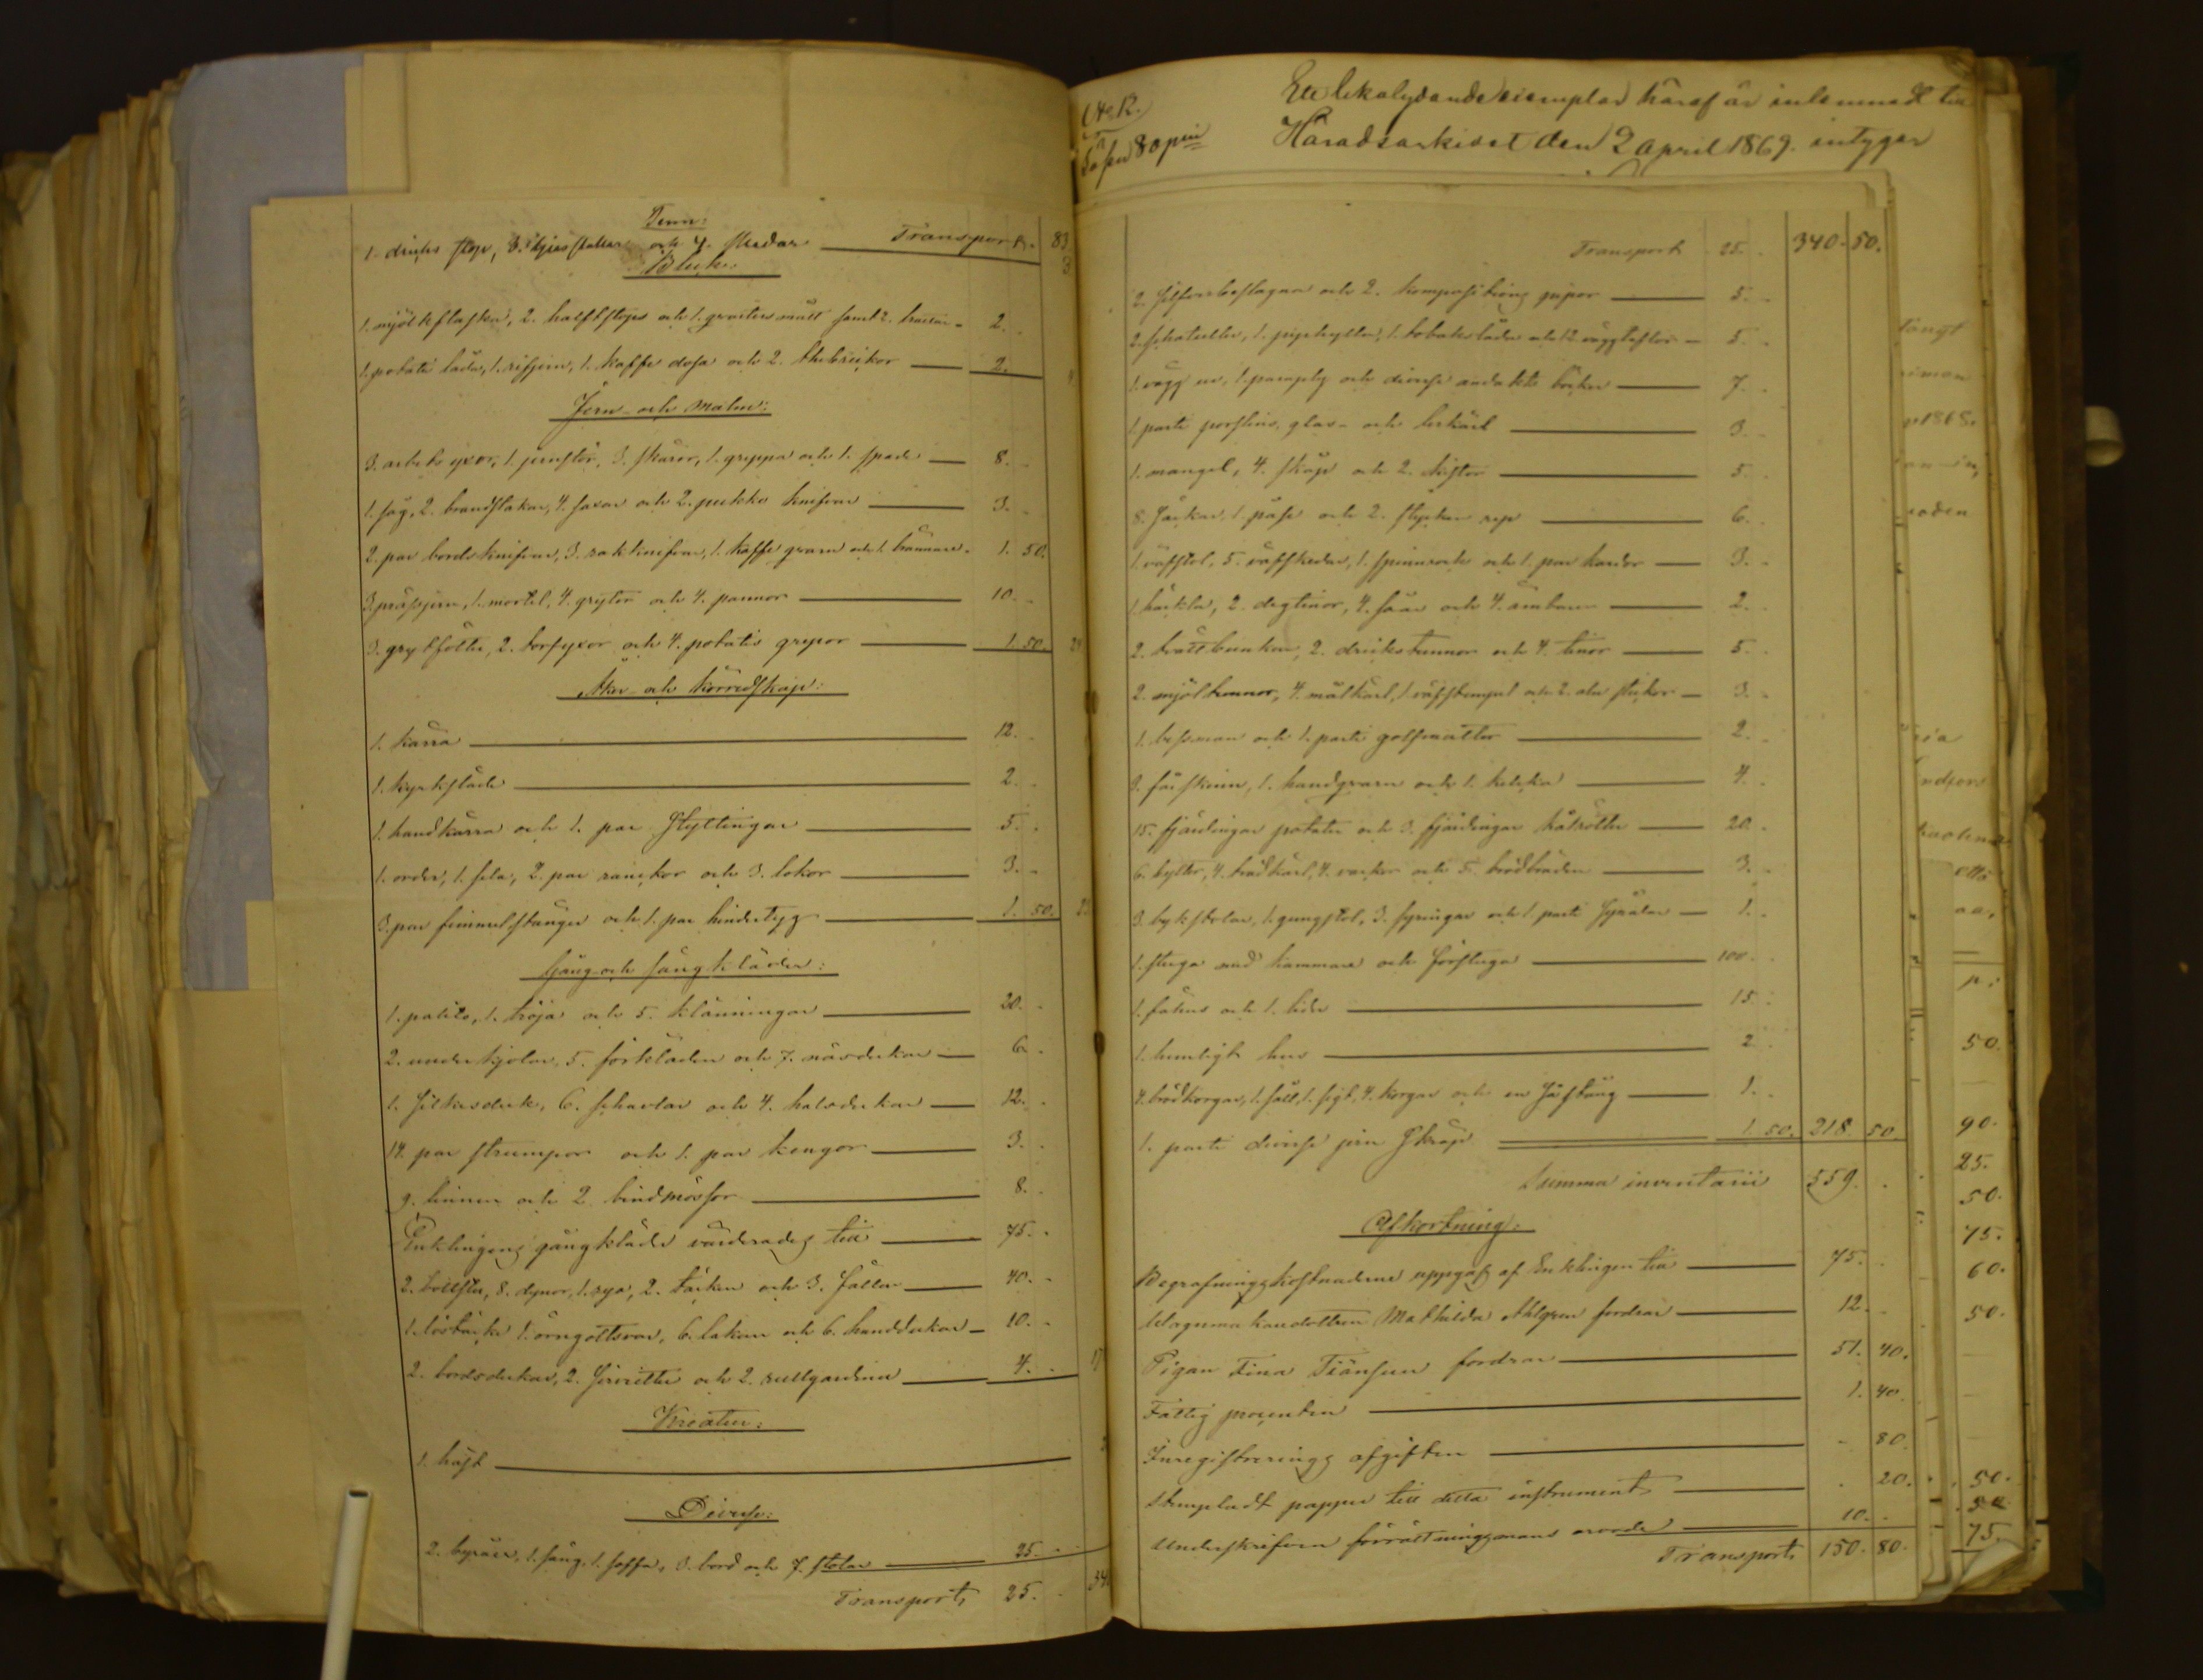 Tenn:
Transport. 83
1. dricks stop, 3. ljusstakar och 7. skedar 3
Bleck:
1. mjölkflaska, 2. halfstops och 1. qvarters mått samt 2. trattar 2. -
1. potatis låda, 1. rifjern, 1. kaffe dosa och 2. thebrickor 2.
Jern- och malm:
3. arbets yxor, 1. jernstör, 3. skäror, 1. greppa och 1. spade 8. -
1. såg, 2. brandstakar, 4. saxar och 2. pukko knifvar 3. -
2. par bordsknifvar, 3. rakknifvar, 1. kaffe qvarn och 1. brännare 1. 50.
3. präßjern, 1. mortel, 4. grytor och 4. pannor 10. -
3. grytfötter, 2. torfyxor och 4. potatis grepor 1. 50.
Åker- och körredskap:
1. kärra 12. -
1. kyrksläde 2. -
1. handkärra och 1. par styttingar 5. -
1. order, 1. sela, 2. par ranckor och 3. lokor 3. -
3. par fimmelstänger och 1. par hindertyg 1. 50.
Gång- och sängkläder:
1. paletå, 1. tröja och 5. klänningar 20. -
2. underkjolar, 5. förkläden och 7. näsdukar 6. -
1. silkesduk, 6. schavlar och 4. halsdukar 12. -
14. par strumpor och 1. par kengor 3. -
9. linnen och 2 bindmössor 8. -
Enklingens gångkläder värderades till 75. -
2. bolster, 8. dynor, 1. rya, 2. täcken och 3. fällar 40. -
1. löstäcke 1. örngottsvar, 6. lakan och 6. handdukar 10. -
2. bordsdukar, 2. servietter och 2. rullgardiner 4. -
Kreatur:
1. häst
Diverse:
2. byråer, 1. säng, 1. soffa, 3. bord och 7. stolar 25. -
Transport, 25. -
80 pni
Ett likalydande exemplar häraf är inlemnadt till
Häradsarkivet den 2 April 1869. intygar
Transport 25. - 340. 50.
2. silfverbeslagna och 2. kompositions pipor 5. -
2. schatuller, 1. piphylla, 1. tobakslåda och 12. väggtaflor 5. -
1. vägg ur, 1. paraply och diverse andakts böcker 7. -
1. parti porslins, glas- och lerkärl 3. -
1. mangel, 4. skåp och 2. kistor 5. -
8. säckar, 1. påse och 2. stycken rep 6. -
1. väfstol, 5. väfskedar, 1. spinnrock och 1. par kardor 3. -
1. häckla, 2. degtinor, 4. såar och 4. ämbare 2. -
2. trättbunkar, 2. drickstunnor och 4. tinor 5. -
2. mjöltunnor, 4. målkärl, 1. väfstempel och 2. aln stickor 3. -
1. bessman och 1. parti golfmattor 2. -
3. fårskinn, 1. handqvarn och 1. kälcka 4. -
15. fjärdingar potater och 3. fjärdingar kålrötter 20. -
6. byttor, 4. trädkärl, 4. vackor och 5. brödbräden 3. -
3. bykstolar, 1. gungstol, 3. syringar och 1. parti syrålar 1. -
1. stuga med kammare och förstuga 100. -
1. fähus och 1. lider 15. -
1. hemligt hus 2. -
4. brödkorgar, 1. såll, 1. sigt, 4. korgar och en såstång 1. -
1. parti diverse jern skrap 1. 50. 218. 50.
Summa inventarii 559. -
Afkortning:
Begrafningskostnaderne uppgaf af Enklingen till 75. -
Mathilda Ahlgren fordrar 12. -
Pigan Fina Fränsten fordrar 51. 40.
Fattig procenten 1. 40.
Inregistrerings afgiften - 80.
Stempladt papper till detta instrument - 20.
Underskrifven förrättningsmans arvode 10. -
Transport, 150. 80.
50.
90.
25.
50.
75.
60.
50.
50.
75.